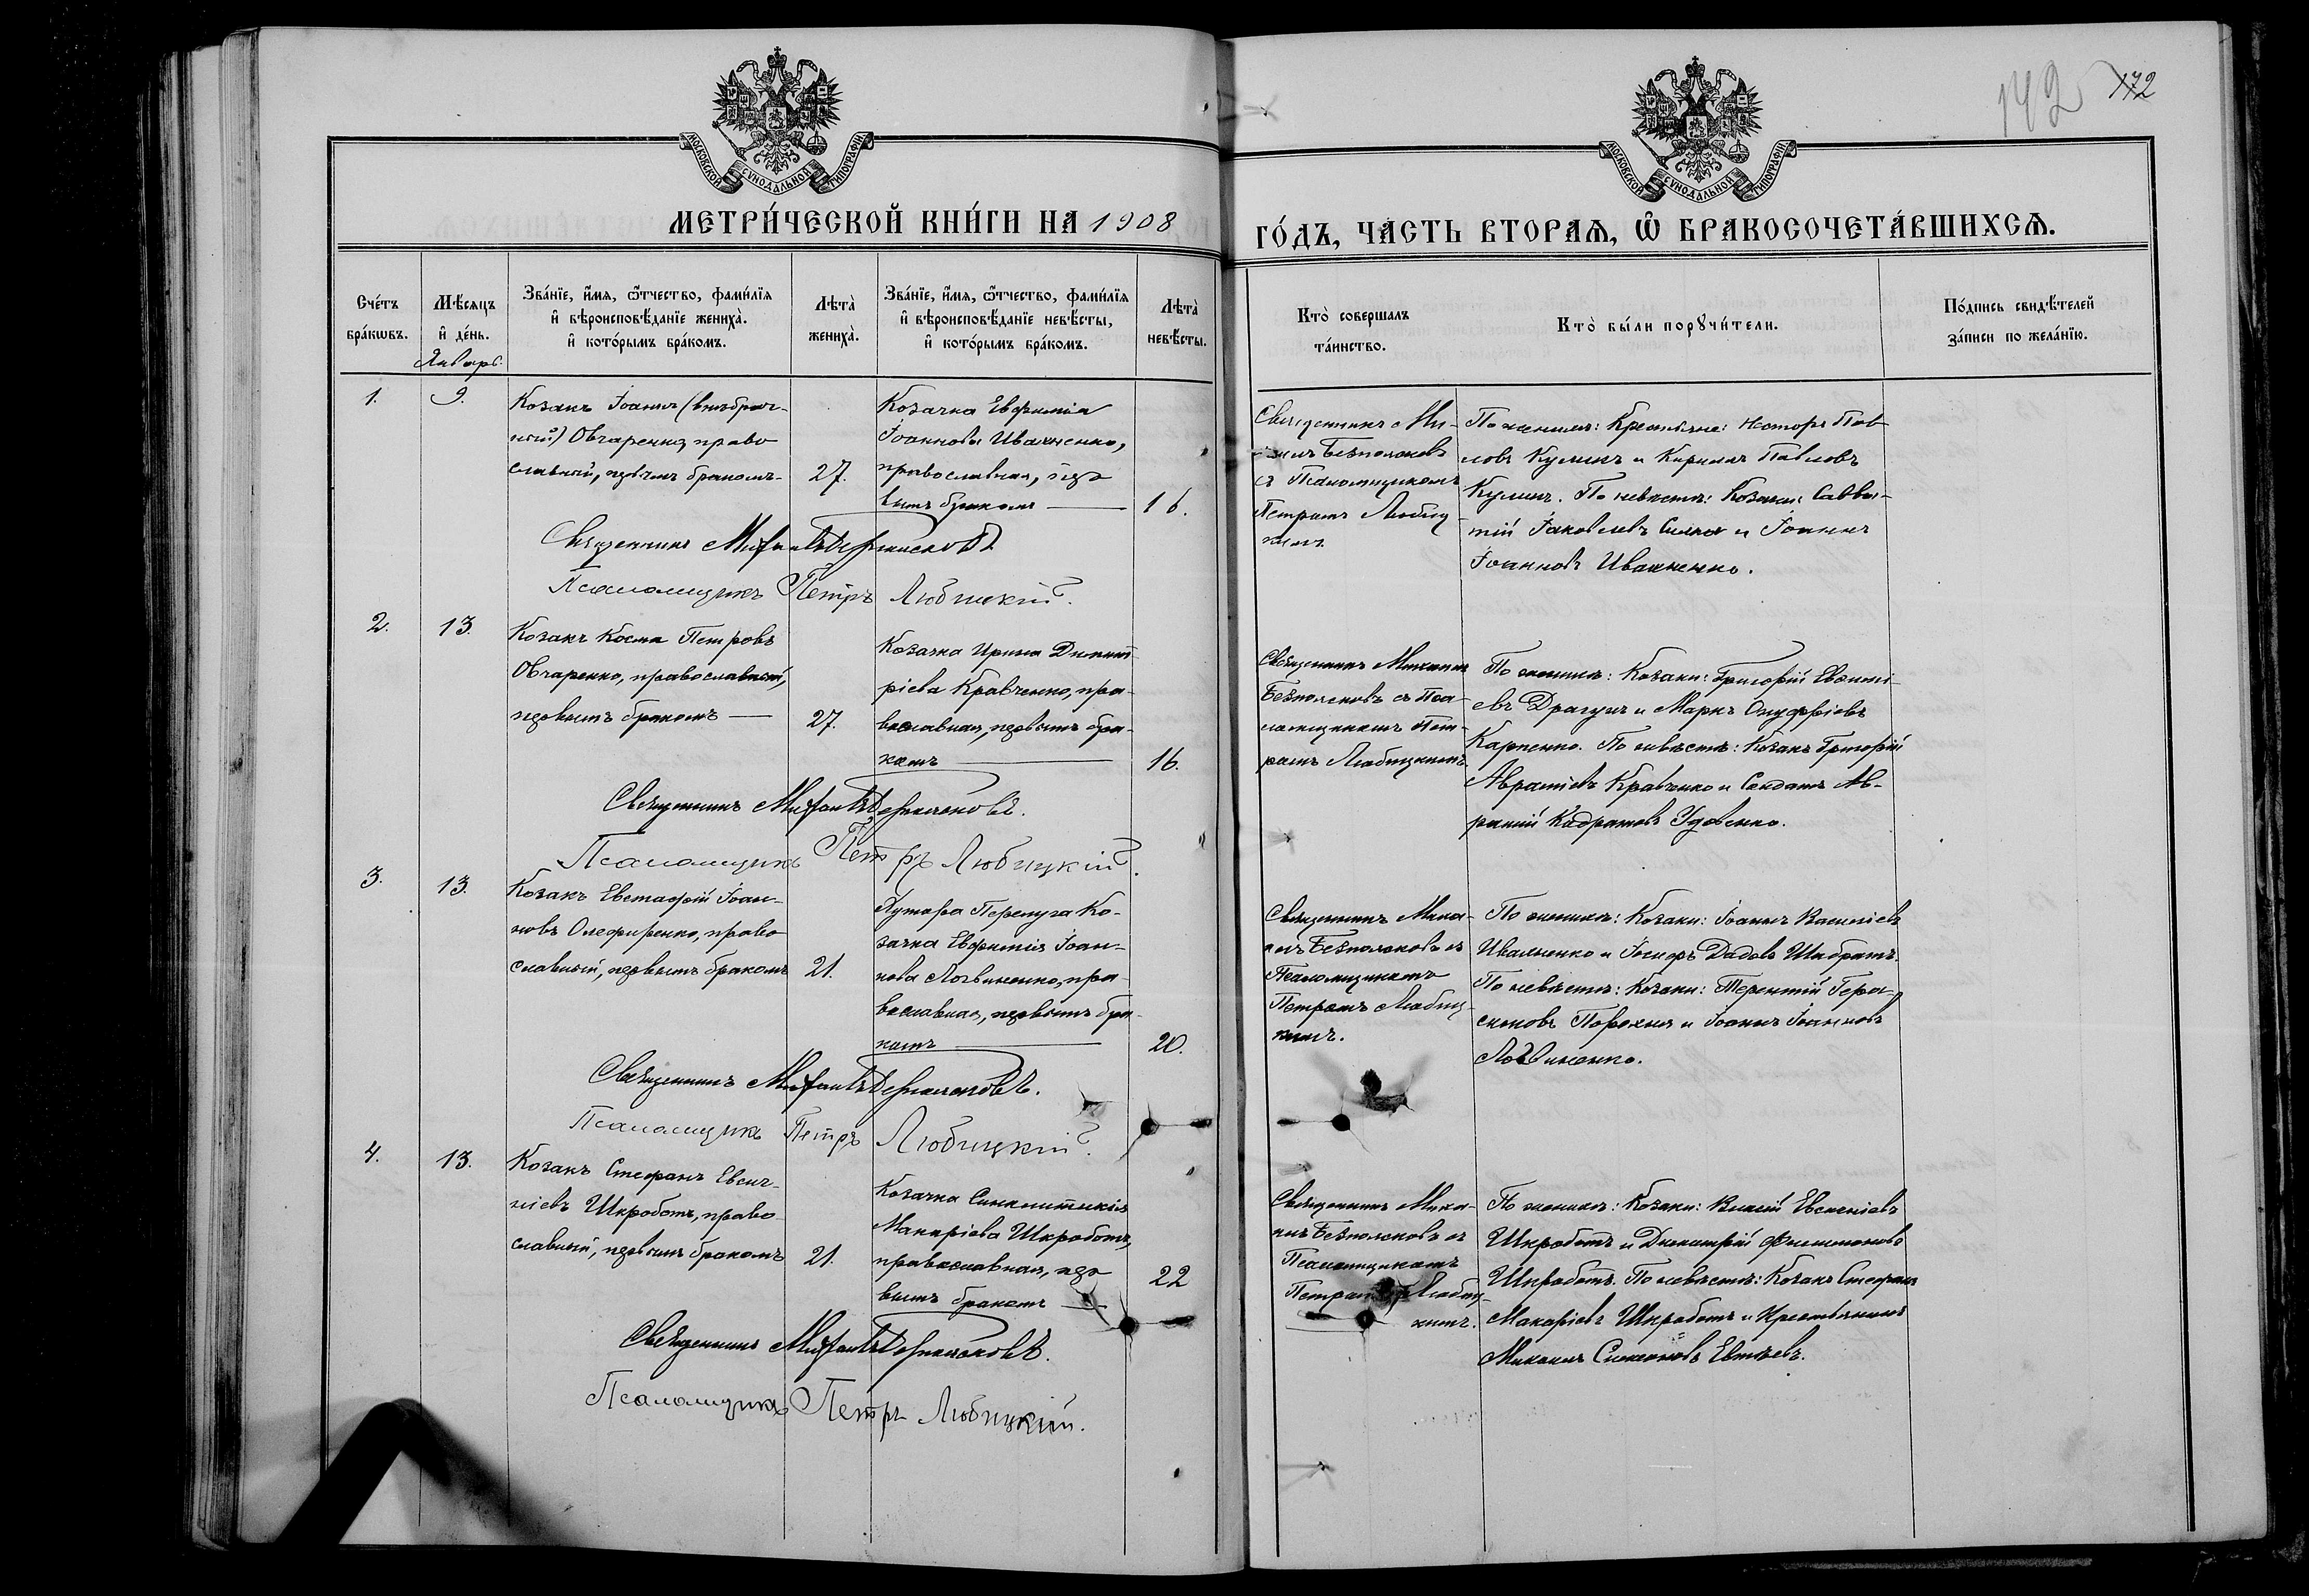 142 172
МОСКОВСКОЙ СѴНОДАЛЬНОЙ ТИПОГРАФІИ
МОСКОВСКОЙ СѴНОДАЛЬНОЙ ТИПОГРАФІИ
МЕТРИ́ЧЕСКОЙ КНИ́ГИ НА 1908
ГО́ДЪ, ЧА́СТЬ ВТОРАѦ, Ѽ БРАКОСОЧЕТА́ВШИХСѦ.
Сче́тъ бра́кѡвъ.
Мѣ́сяцъ и҆ де́нь.
Январь.
Зва́нїе, и҆́мя, ѻ҆́тчество, фами́лїя
и҆ вѣроисповѣ́данїе жениха̀.
и҆ кото́рымъ бра́комъ.
Лѣта̀ жениха̀.
Зва́нїе, и҆́мя, ѻ҆́тчество, фами́лїя
и҆ вѣроисповѣ́данїе невѣ́сты,
и҆ кото́рымъ бра́комъ.
Лѣта̀ невѣ́сты.
Кто̀ совершалъ та́инство.
Кто̀ бы́ли порꙋчи́тели.
По́дпись свидѣ́телей за́писи по жела́нїю.
1.
9.
Козакъ Іоаннъ (внѣбрач-
ный) Овчаренко, право
славный, первымъ бракомъ
27.
Козачка Евфимія
Іоаннова Ивахненко,
православная, пер
вымъ бракомъ
16.
Священникъ Ми-
хаилъ Безполоковъ
съ Псаломщикомъ
Петромъ Любиц
кимъ
По женихѣ: Крестьяне: Несторъ Пав
ловъ Кулинъ и Кириллъ Павловъ
Кулинъ. По невѣстѣ: Козаки: Савва-
тій Іаковлевъ и Іоаннъ
Іоанновъ Ивахненко.
Священникъ
Псаломщикъ Петръ Любицкій.
2.
13.
Козакъ Косма Петровъ
Овчаренко, православный,
первымъ бракомъ
27.
Козачка Ирина Димит
ріева Кравченко, пра-
вославная, первымъ бра-
комъ
16.
Священникъ Михаилъ
Безполоковъ съ Пса-
ломщикомъ Пет-
ромъ Любицкимъ
По женихѣ: Козаки: Григорій Евфимі-
евъ Драгунъ и Маркъ Онуфріевъ
Карпенко. По невѣстѣ: Козакъ Григорій
Авраміевъ Кравченко и Солдатъ Ав-
рамій Кодратовъ Удовенко.
Священникъ
Псаломщикъ Петръ Любицкій.
3.
13.
Козакъ Евстафій Іоан-
новъ Олефиренко, право
славный, первымъ бракомъ
21.
Хутора Перелуга Ко-
зачка Евфимія Іоан-
нова Логвиненко, пра-
вославная, первымъ бра-
комъ
20.
Священникъ Миха-
илъ Безполоковъ съ
Псаломщикомъ
Петромъ Любиц-
кимъ.
По женихѣ: Козаки: Іоаннъ Василіевъ
Ивахненко и Іосифъ
По невѣстѣ: Козаки: Терентій Гера-
симовъ Порохня и Іоаннъ Іоанновъ
Логвиненко.
Священникъ
Псаломщикъ Петръ Любицкій.
4.
13.
Козакъ Стефанъ Евсиг-
ніевъ Шкроботъ, право
славный, первымъ бракомъ
21.
Козачка Синклитикія
Макаріева Шкроботъ,
православная, пер
вымъ бракомъ
22
Священникъ Миха-
илъ Безполоковъ съ
Псаломщикомъ
Петромъ Любиц-
кимъ.
По женихѣ: Козаки: Евсигніевъ
Шкроботъ и Димитрій Филимоновъ
Шкроботъ. По невѣстѣ: Козакъ Стефанъ
Макаріевъ Шкроботъ и Крестьянинъ
Михаилъ Симеоновъ Евтѣевъ.
Священникъ
Псаломщикъ Петръ Любицкій.